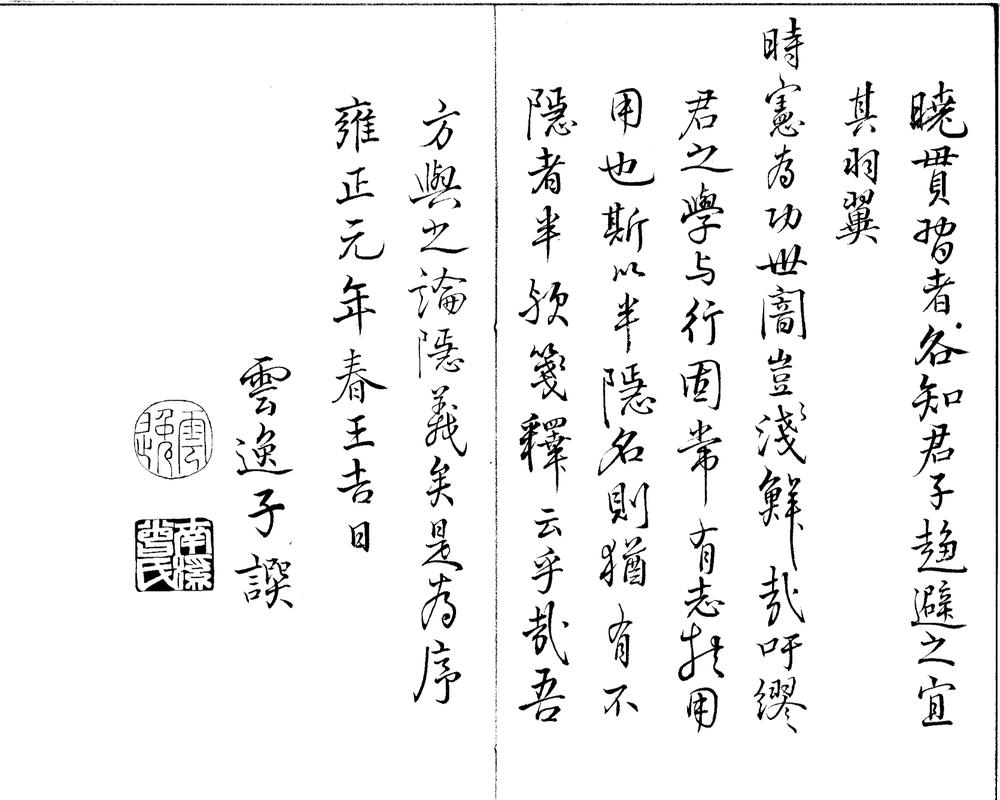 曉貫摺者各知君子趨避之宜
其羽翼
時憲為功世闇豈淺鮮哉吁繆
君之學与行固常有志於用
用也斯以半隱名則猶有不
隱者半須箋釋云乎哉吾
方與之論隱義矣是為序
雍正元年春王吉日
雲逸子譔
雲逸